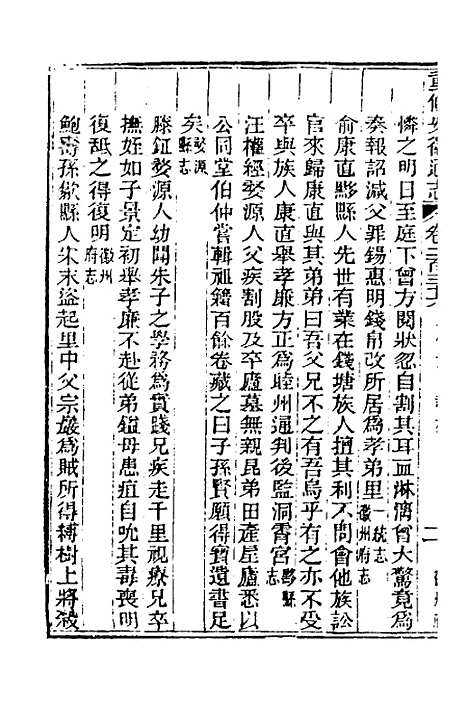 重修安徽通志　卷二百三十六
憐之明日至庭下曾方閱狀忽自割其耳血淋漓曾大驚竟爲
奏報詔減父罪錫惠明錢帛改所居爲孝弟里一統志徽州府志
俞康直黟縣人先世有業在錢塘族人擅其利不問會他族訟
官來歸康直與其弟弟曰吾父兄不之有吾烏乎有之亦不受
卒與族人康直舉孝廉方正爲睦州通判後監洞霄宮黟縣志
汪權經婺源人父疾割股及卒廬墓無親昆弟田產屋廬悉以
公同堂伯仲嘗輯祖籍百餘卷藏之曰子孫賢願得寳遺書足
矣婺源縣志
滕鉦婺源人幼聞朱子之學務爲實踐兄疾走千里視療兄卒
撫姪如子景定初舉孝廉不赴從弟鎰母患疽自吮其毒喪明
復䑛之得復明徽州府志
鮑壽孫歙縣人宋末盜起里中父宗巖爲賊所得縛樹上將殺